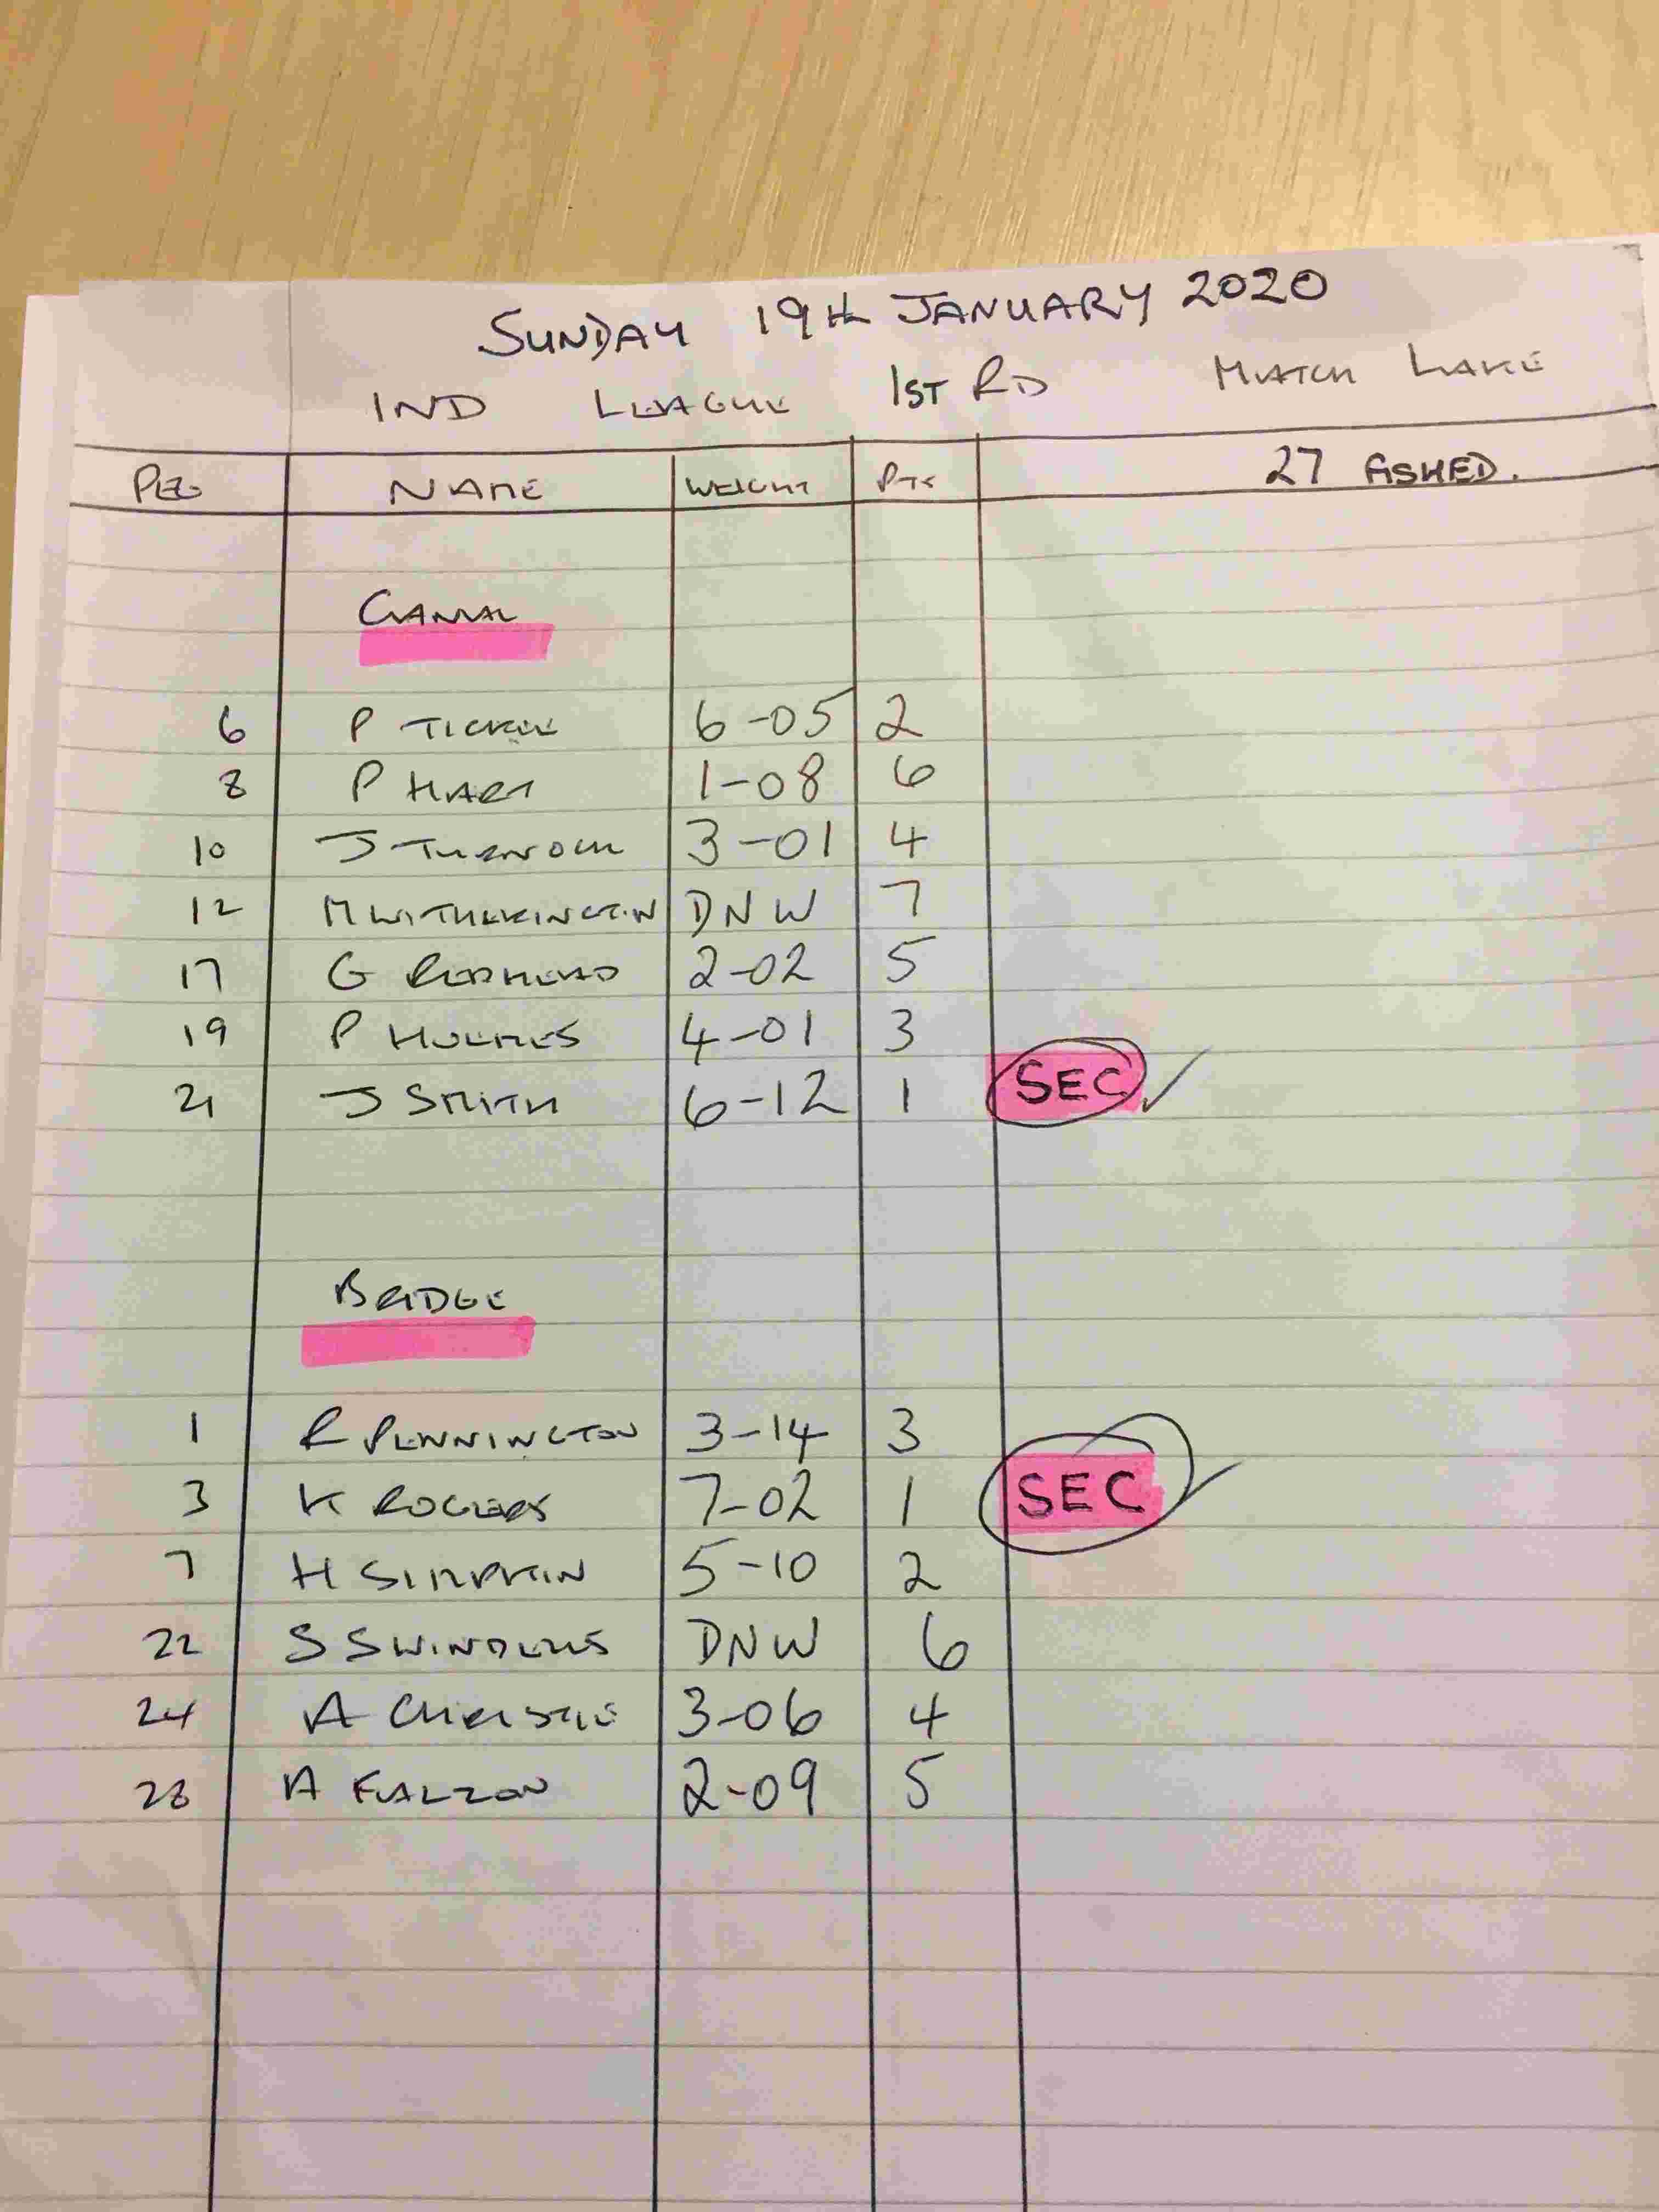 SUNDAY 19th JANUARY 2020
IND LEAGUE 1ST RD MATCH LAKE
PEG NAME WEIGHT PTS 27 FISHED.
CANAL
6 P TICKLE 6-05 2
8 P HART 1-08 6
10 J TURNOCK 3-01 4
12 M WITHERINGTON DNW 7
17 G REDHEAD 2-02 5
19 P HOLMES 4-01 3
21 J SMITH 6-12 1 SEC
BRIDGE
1 R PENNINGTON 3-14 3
3 K ROGERS 7-02 1 SEC
7 H SIMPKIN 5-10 2
22 S SWINDELLS DNW 6
24 A CHRISTIE 3-06 4
28 A FALZON 2-09 5